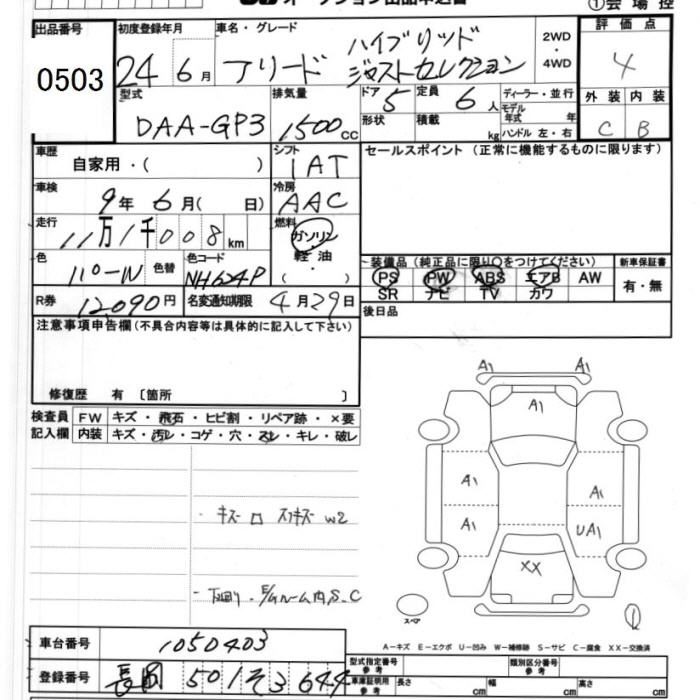 オークション出品申込書 ①会場控
出品番号 0503
初度登録年月 24年6月
車名・グレード アリード ハイブリッド ジャストセレクション
2WD・4WD
評価点 4
外装 C 内装 B
型式 DAA-GP3
排気量 1500cc
ドア 5 形状
定員 6人 積載 kg
ディーラー・並行
モデル年式 年式
ハンドル 左・右
車歴 自家用・( )
シフト IAT
セールスポイント (正常に機能するものに限ります)
車検 9年6月( 日)
冷房 AAC
走行 11万1千008km
燃料 ガソリン・軽油・( )
色 パール-W 色替
色コード NH624P
装備品 (純正品に限り○をつけてください)
PS PW ABS エアB AW
SR ナビ TV カワ
新車保証書 有・無
R券 12090円
名変通知期限 4月29日
後日品
注意事項申告欄(不具合内容等は具体的に記入して下さい)
修復歴 有〔箇所 〕
検査員記入欄
FW キズ・飛石・ヒビ割・リペア跡・×要
内装 キズ・汚レ・コゲ・穴・スレ・キレ・破レ
・キズ ロ スリキズ W2
・下回り、E/gルーム内、S、C
A1 A1
A1
A1 A1
A1 UA1
XX
スペア
①
A−キズ E−エクボ U−凹み W−補修跡 S−サビ C−腐食 XX−交換済
車台番号 1050403
登録番号 長岡 501 そ 3644
型式指定番号 参考
類別区分番号 参考
車庫証明用 参考 長さ cm 幅 cm 高さ cm